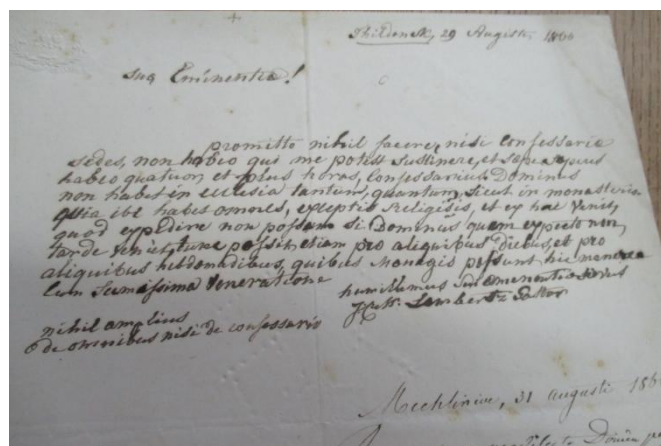 Thildonk, 29 Augusti, 1860
sua Eminentia!
promitto nihil facere, nisi confessaria
sedes, non habeo qui me potest sustinere, et sepe sepius
habeo quatuor, et plus horas, Confessarius Dominus
non habet in ecclesia tantum, quantum, sicut in monasterio
quia ibi habet omnes, exceptis Religiosis, et ex hac venit,
quod expedire non possum si Dominus quem expecto non
tarde veniet, tunc possit, etiam pro aliquibus Diebus, et pro
aliquibus hebdomadibus, quibus potsunt hic manere
Cum Sumassima Veneratione
humillimus Servus
Lambertz Pastor
nihil amplius
de omnibus nisi de confessario
Mechliniæ, 31 augusti 186